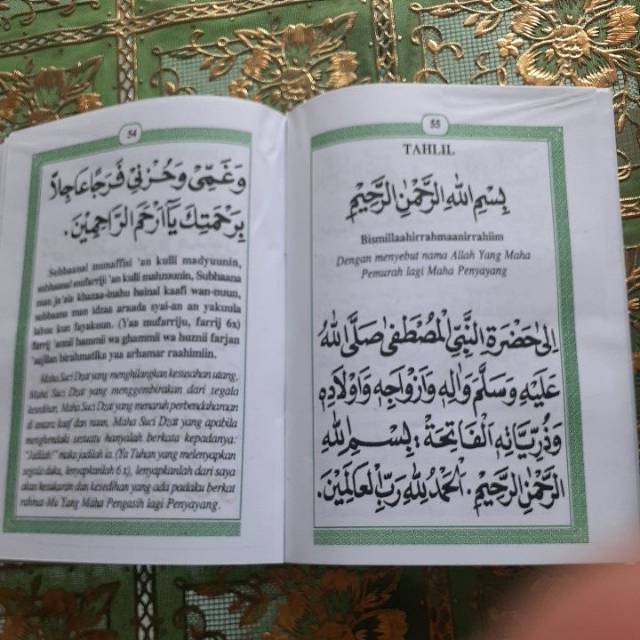 54
وَغَمِّيْ وَحُزْنِيْ فَرَجًا عَاجِلًا
بِرَحْمَتِكَ يَآاَرْحَمَ الرَّاحِمِيْنَ.
Subhaanal munaffisi 'an kulli madyuunin,
subhaanal mufarriji 'an kulli mahzuunin, Subhaana
man ja'ala khazaa-inahu bainal kaafi wan-nuun,
subhaana man idzaa araada syai-an an yakuula
lahuu kun fayakuun. (Yaa mufarriju, farrij 6x)
farrij 'annii hammii wa ghammii wa huznii farjan
'aajilan birahmatika yaa arhamar raahimiin.
Maha Suci Dzat yang menghilangkan kesusahan utang,
Maha Suci Dzat yang menggembirakan dari segala
kesedihan, Maha Suci Dzat yang menaruh perbendaharaan
di antara kaaf dan nuun, Maha Suci Dzat yang apabila
menghendaki sesuatu hanyalah berkata kepadanya:
"Jadilah!" maka jadilah ia. (Ya Tuhan yang melenyapkan
segala duka, lenyapkanlah 6 x), lenyapkanlah dari saya
akan kesukaran dan kesedihan yang ada padaku berkat
rahmat-Mu Yang Maha Pengasih lagi Penyayang.
55
TAHLIL
بِسْمِ اللهِ الرَّحْمٰنِ الرَّحِيْمِ
Bismillaahirrahmaanirrahiim
Dengan menyebut nama Allah Yang Maha
Pemurah lagi Maha Penyayang
اِلٰى حَضْرَةِ النَّبِيِّ الْمُصْطَفٰى صَلَّى اللهُ
عَلَيْهِ وَسَلَّمَ وَاٰلِهِ وَاَزْوَاجِهِ وَاَوْلَادِهِ
وَذُرِّيَّاتِهِ الْفَاتِحَةَ : بِسْمِ اللهِ
الرَّحْمٰنِ الرَّحِيْمِ. اَلْحَمْدُ لِلّٰهِ رَبِّ الْعَالَمِيْنَ.